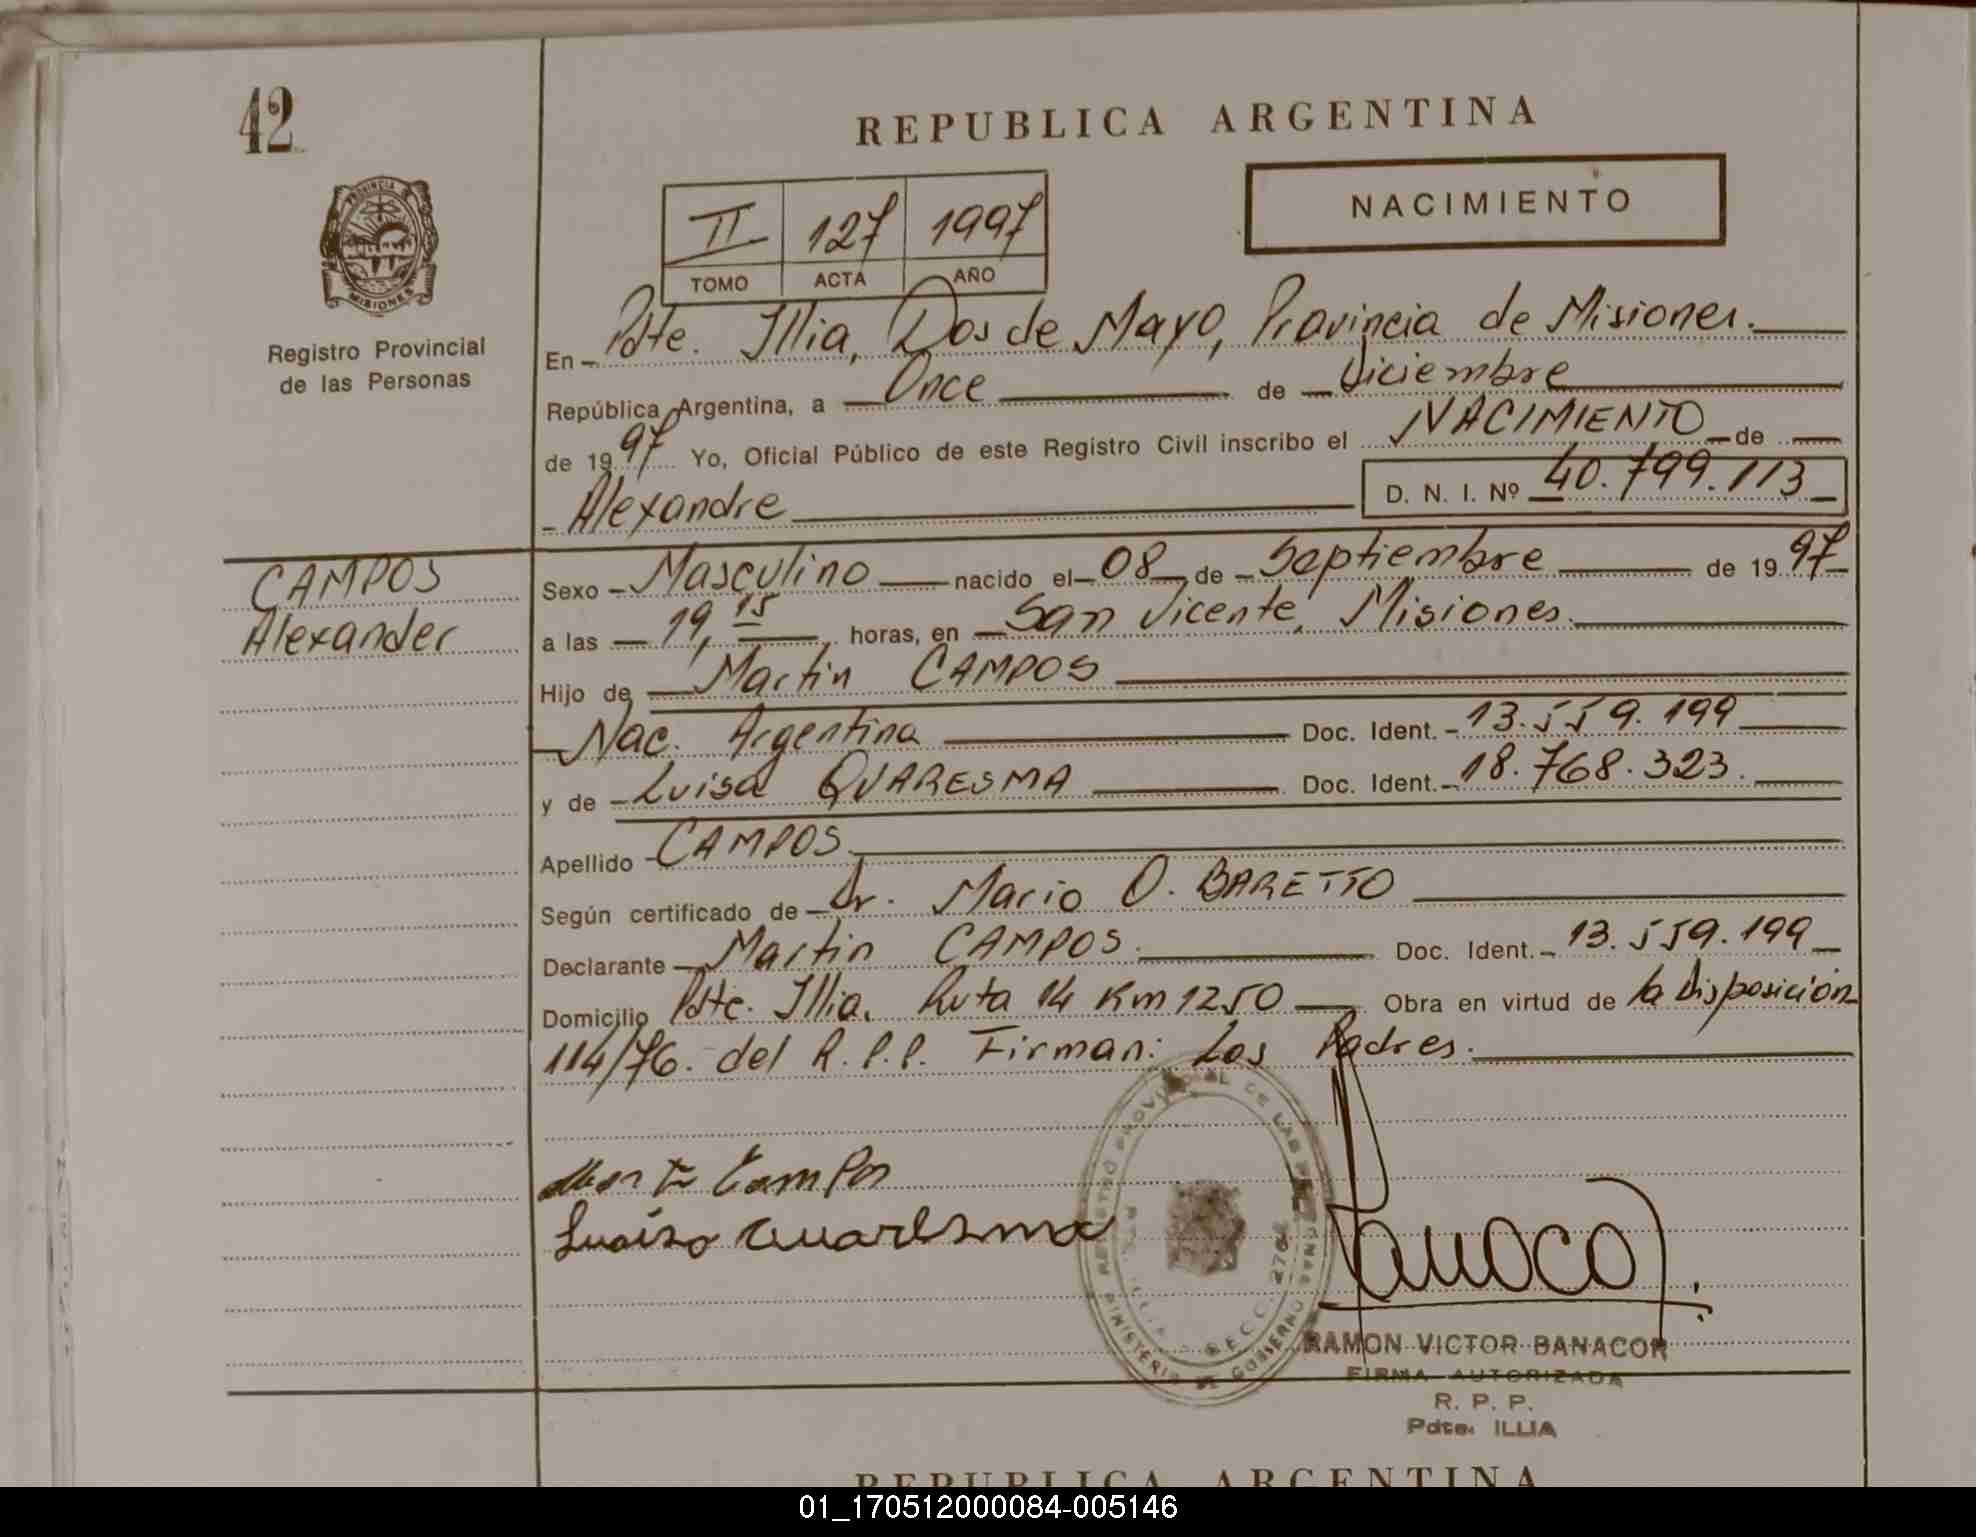 42
REPUBLICA ARGENTINA
NACIMIENTO
II 127 1997
TOMO ACTA AÑO
PROVINCIA DE
MISIONES
Registro Provincial
de las Personas
En Pdte. Illia, Dos de Mayo, Provincia de Misiones.
República Argentina, a Once de Diciembre
de 1997 Yo, Oficial Público de este Registro Civil inscribo el NACIMIENTO de
Alexandre D. N. I. Nº 40.799.113
CAMPOS
Alexander
Sexo Masculino nacido el 08 de Septiembre de 1997
a las 19,15 horas, en San Vicente, Misiones.
Hijo de Martin CAMPOS
Nac. Argentina Doc. Ident. 13.559.199
y de Luisa QUARESMA Doc. Ident. 18.768.323.
Apellido CAMPOS
Según certificado de Dr. Mario O. BARETTO
Declarante Martin CAMPOS. Doc. Ident. 13.559.199
Domicilio Pdte. Illia. Ruta 14 Km 1250 Obra en virtud de la Disposición
114/76. del R.P.P. Firman: Los Padres.
Campos
Luisa Quaresma
REGISTRO PROVINCIAL DE LAS PERSONAS
MINISTERIO DE GOBIERNO
RAMON VICTOR BANACOR
FIRMA AUTORIZADA
R. P. P.
Pdte. ILLIA
REPUBLICA ARGENTINA
01_170512000084-005146